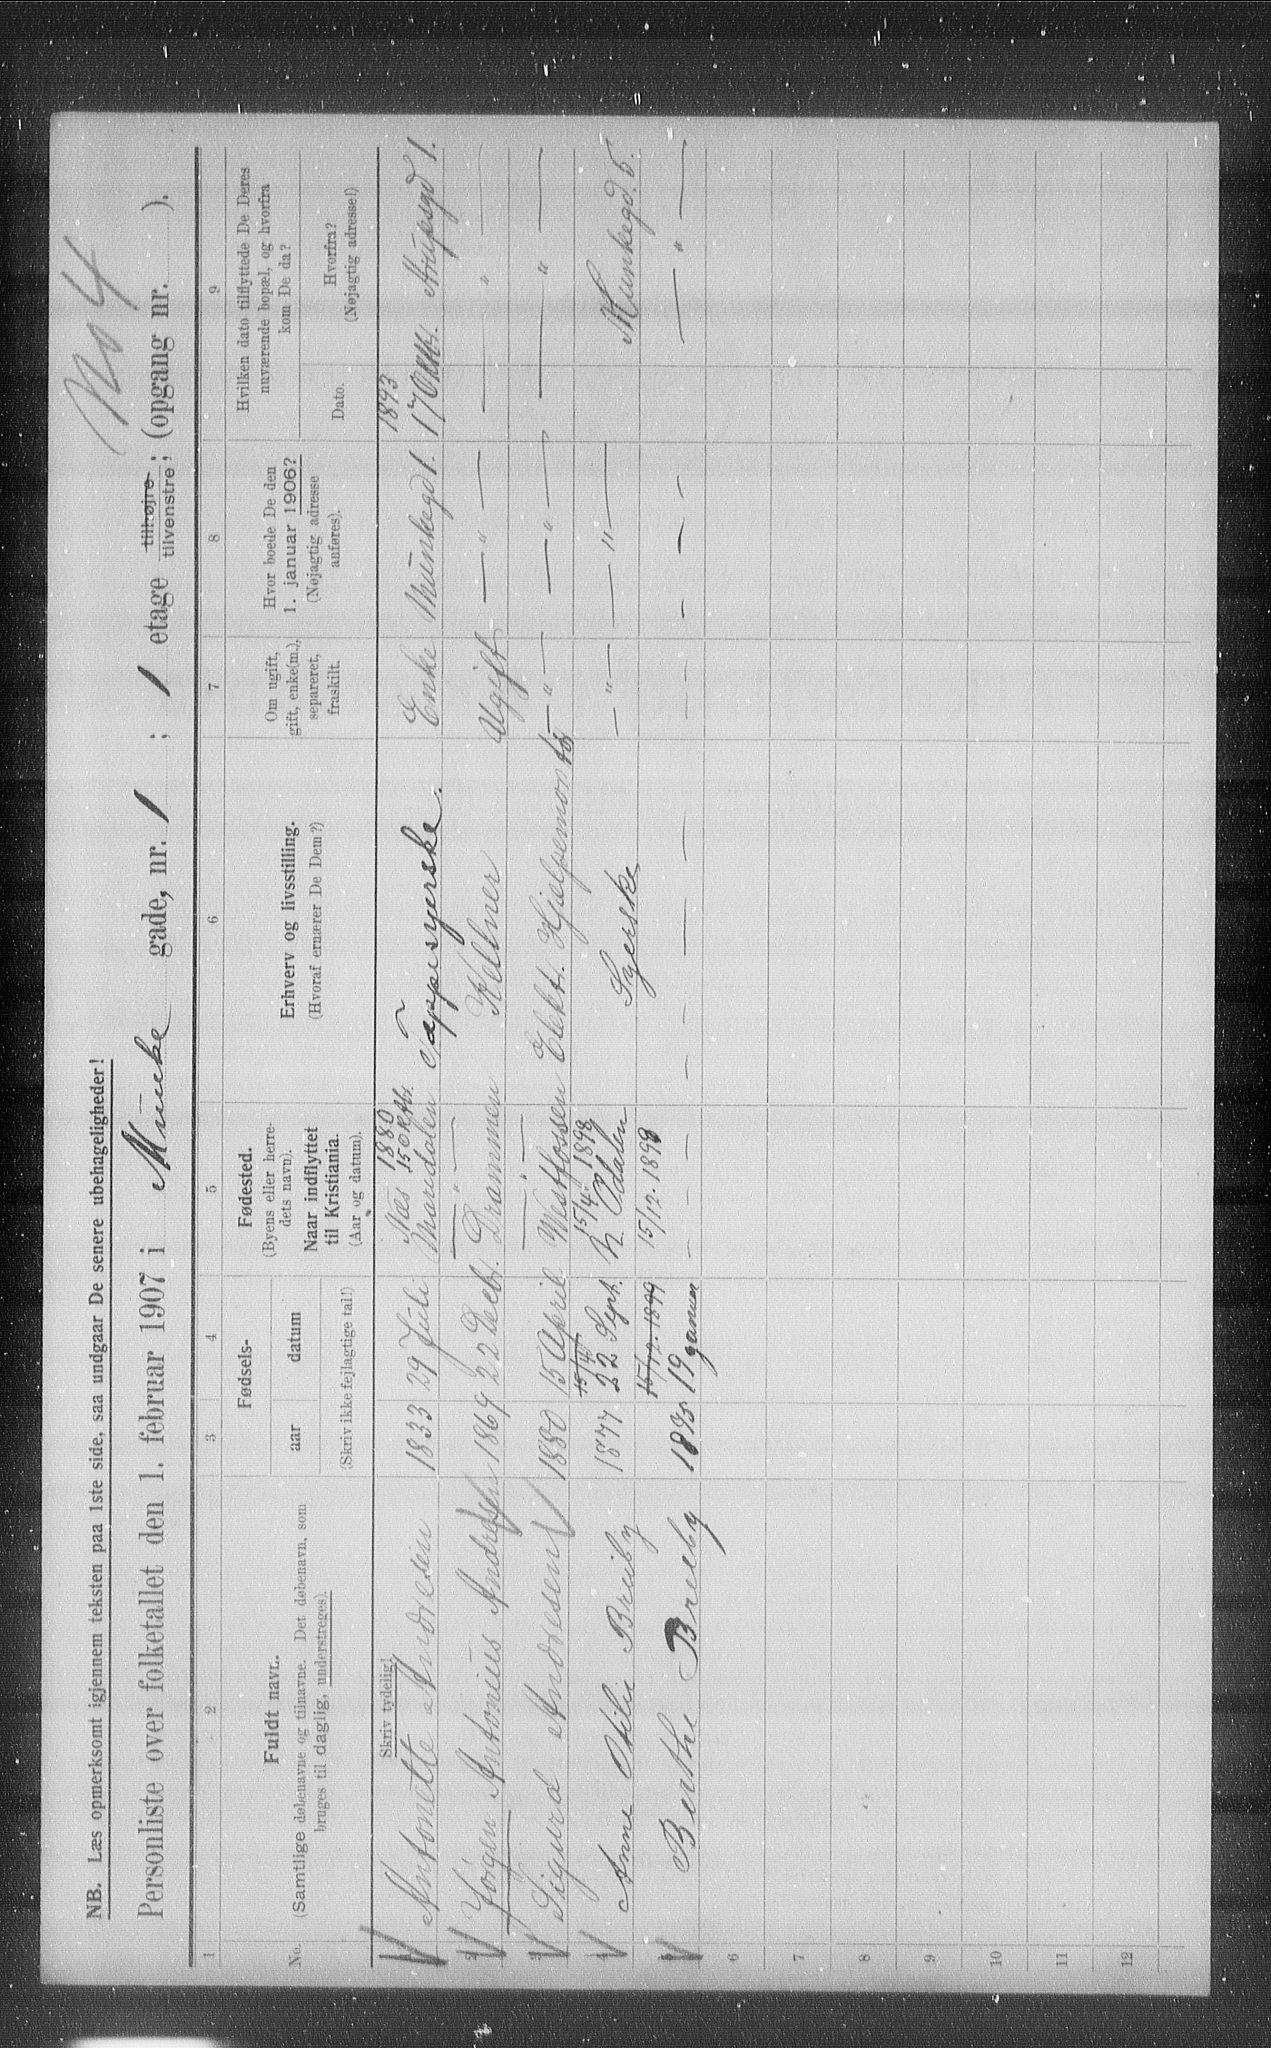 No 4
NB. Læs opmerksomt igjennem teksten paa 1ste side, saa undgaar De senere ubehageligheder!
Personliste over folketallet den 1. februar 1907 i Munke gade, nr. 1 ; 1 etage tilhøjre tilvenstre ; (opgang nr. ).
1 2 3 4 5 6 7 8 9
No.
Fuldt navn.
(Samtlige døbenavne og tilnavne. Det døbenavn, som
bruges til daglig, understreges).
Fødsels-
aar datum
(Skriv ikke fejlagtige tal!)
Fødested.
(Byens eller herre-
dets navn).
Naar indflyttet
til Kristiania.
(Aar og datum).
Erhverv og livsstilling.
(Hvoraf ernærer De Dem?)
Om ugift,
gift, enke(m.),
separeret,
fraskilt.
Hvor boede De den
1. januar 1906?
(Nøjagtig adresse
anføres).
Hvilken dato tilflyttede De Deres
nuværende bopæl, og hvorfra
kom De da?
Dato.
Hvorfra?
(Nøjagtig adresse!)
Skriv tydelig!
Antonette Andresen 1833 29 Juli Næs 1880 15 Oktb. Tæppesyerske. Enke Munkegd 1. 1893 17 Oktb. Arupsgd 1.
2 Jörgen Antonius Andresen 1869 22 Decb. — " — Drammen Kellner Ugift — " — — " —
3 Sigurd Andresen 1880 15 April — " — Westfossen Elekt. Hjelpemontör — " — — " — — " —
Anne Otilie Breiby 1877 15/4 22 Sept. 15/4 1898 N. Odalen Syerske — " — — " — Munkegd. 5.
Berthe Breiby 15/12. 1899 19 januar 15/12. 1898 — — — — — " —
6
7
8
9
10
11
12